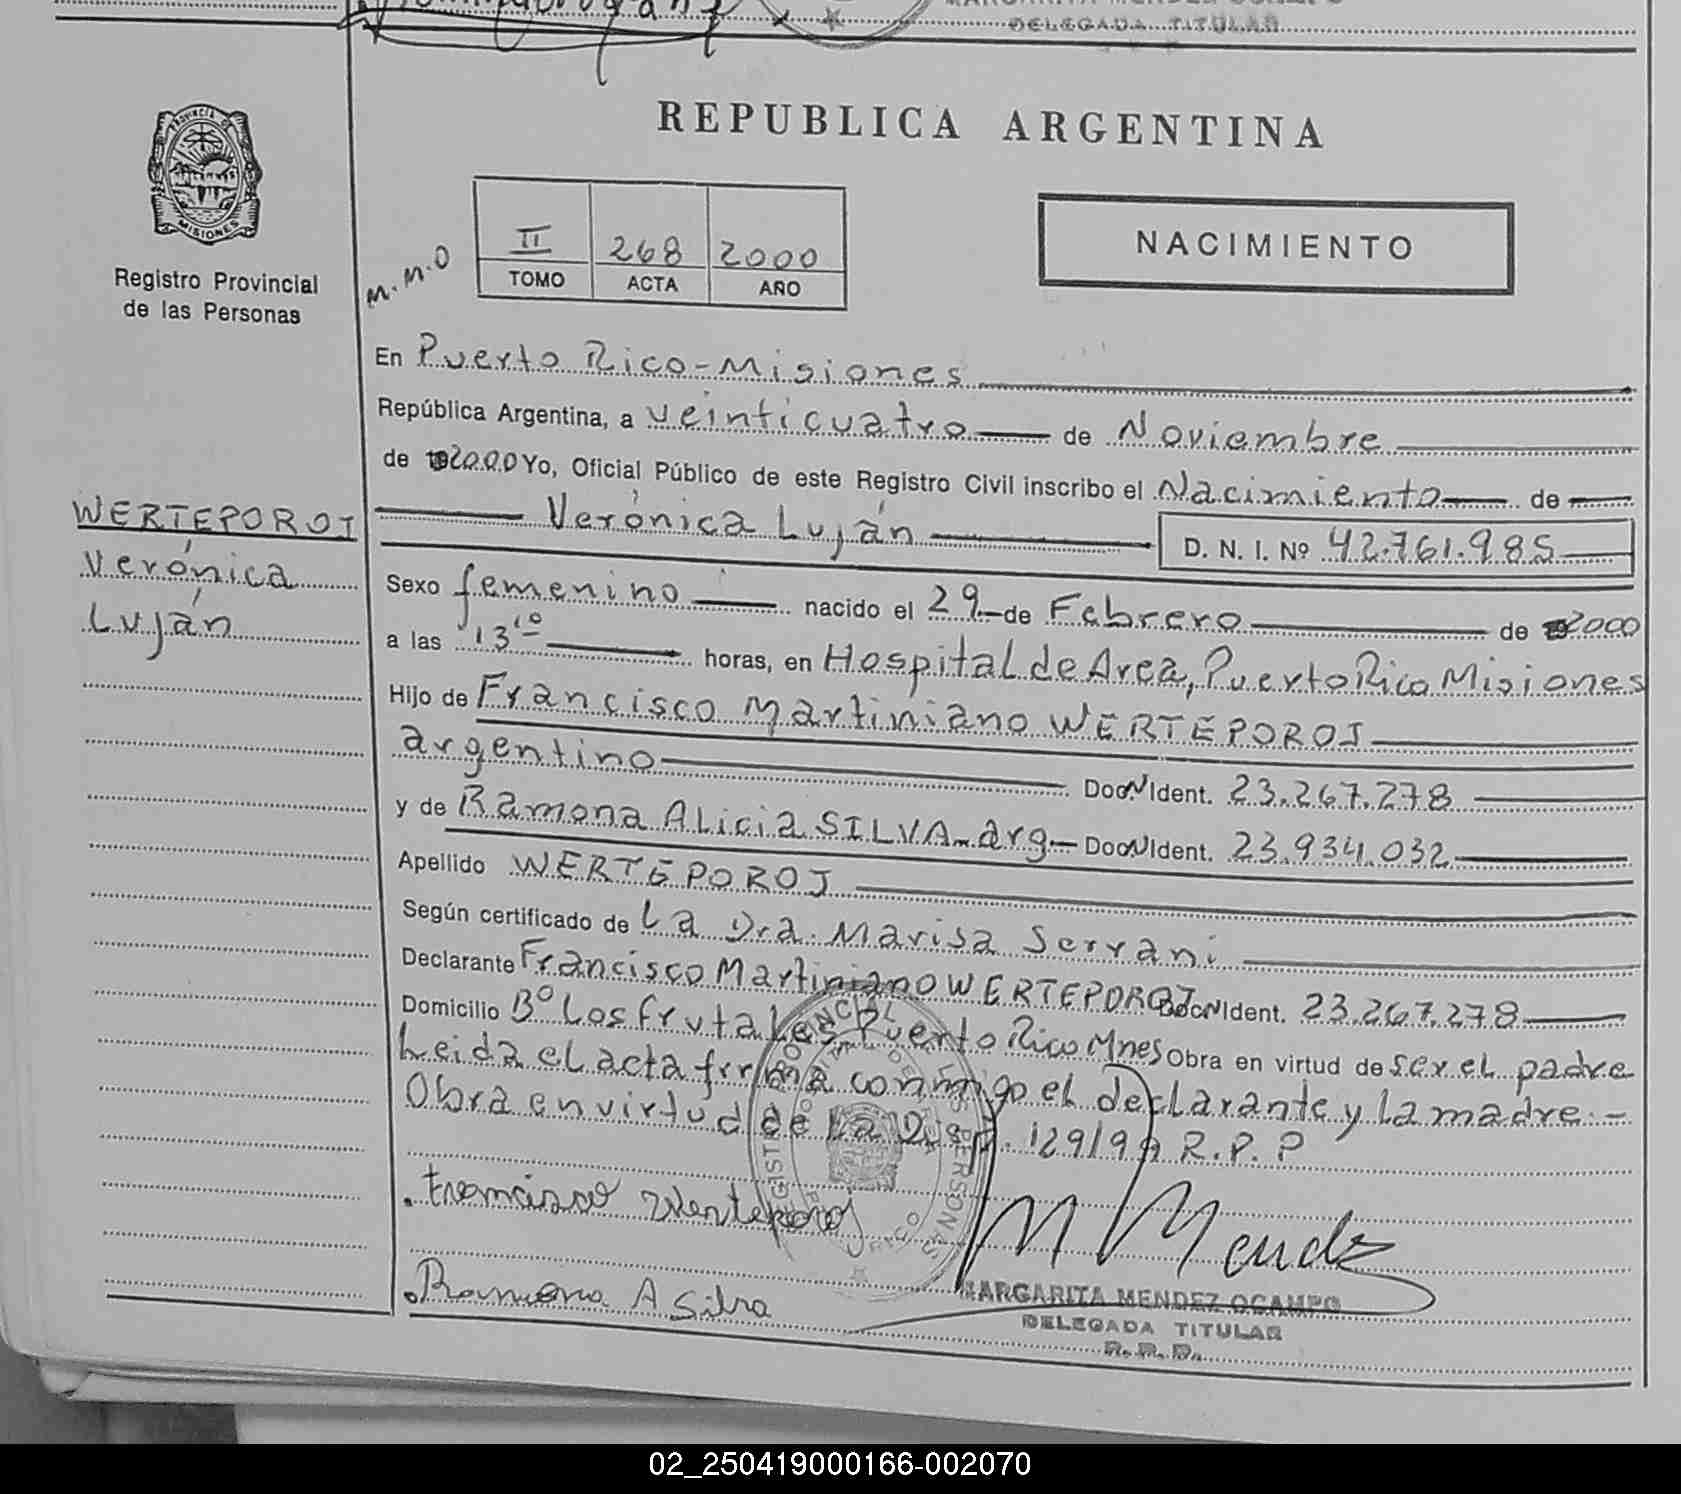 DELEGADA TITULAR
REPUBLICA ARGENTINA
PROVINCIA DE
MISIONES
Registro Provincial
de las Personas
M.M.O
II 268 2000
TOMO ACTA AÑO
NACIMIENTO
En Puerto Rico - Misiones
República Argentina, a veinticuatro de Noviembre
de 2000 Yo, Oficial Público de este Registro Civil inscribo el Nacimiento de
Verónica Luján D. N. I. Nº 42.761.985
WERTEPOROJ
Verónica
Luján
Sexo femenino nacido el 29 de Febrero de 2000
a las 13 10 horas, en Hospital de Area, Puerto Rico Misiones
Hijo de Francisco Martiniano WERTEPOROJ
argentino Doc N Ident. 23.267.278
y de Ramona Alicia SILVA - arg - Doc N Ident. 23.934.032
Apellido WERTEPOROJ
Según certificado de La Dra. Marisa Serrani
Declarante Francisco Martiniano WERTEPOROJ Doc N Ident. 23.267.278
Domicilio Bº Los Frutales Puerto Rico Mnes Obra en virtud de ser el padre
Leida el acta firma conmigo el declarante y la madre.-
Obra en virtud de La Disp. 129/99 R.P.P
Francisco Werteporoj
M Mendez
Ramona A Silva
MARGARITA MENDEZ OCAMPO
DELEGADA TITULAR
R.P.P.
02_250419000166-002070